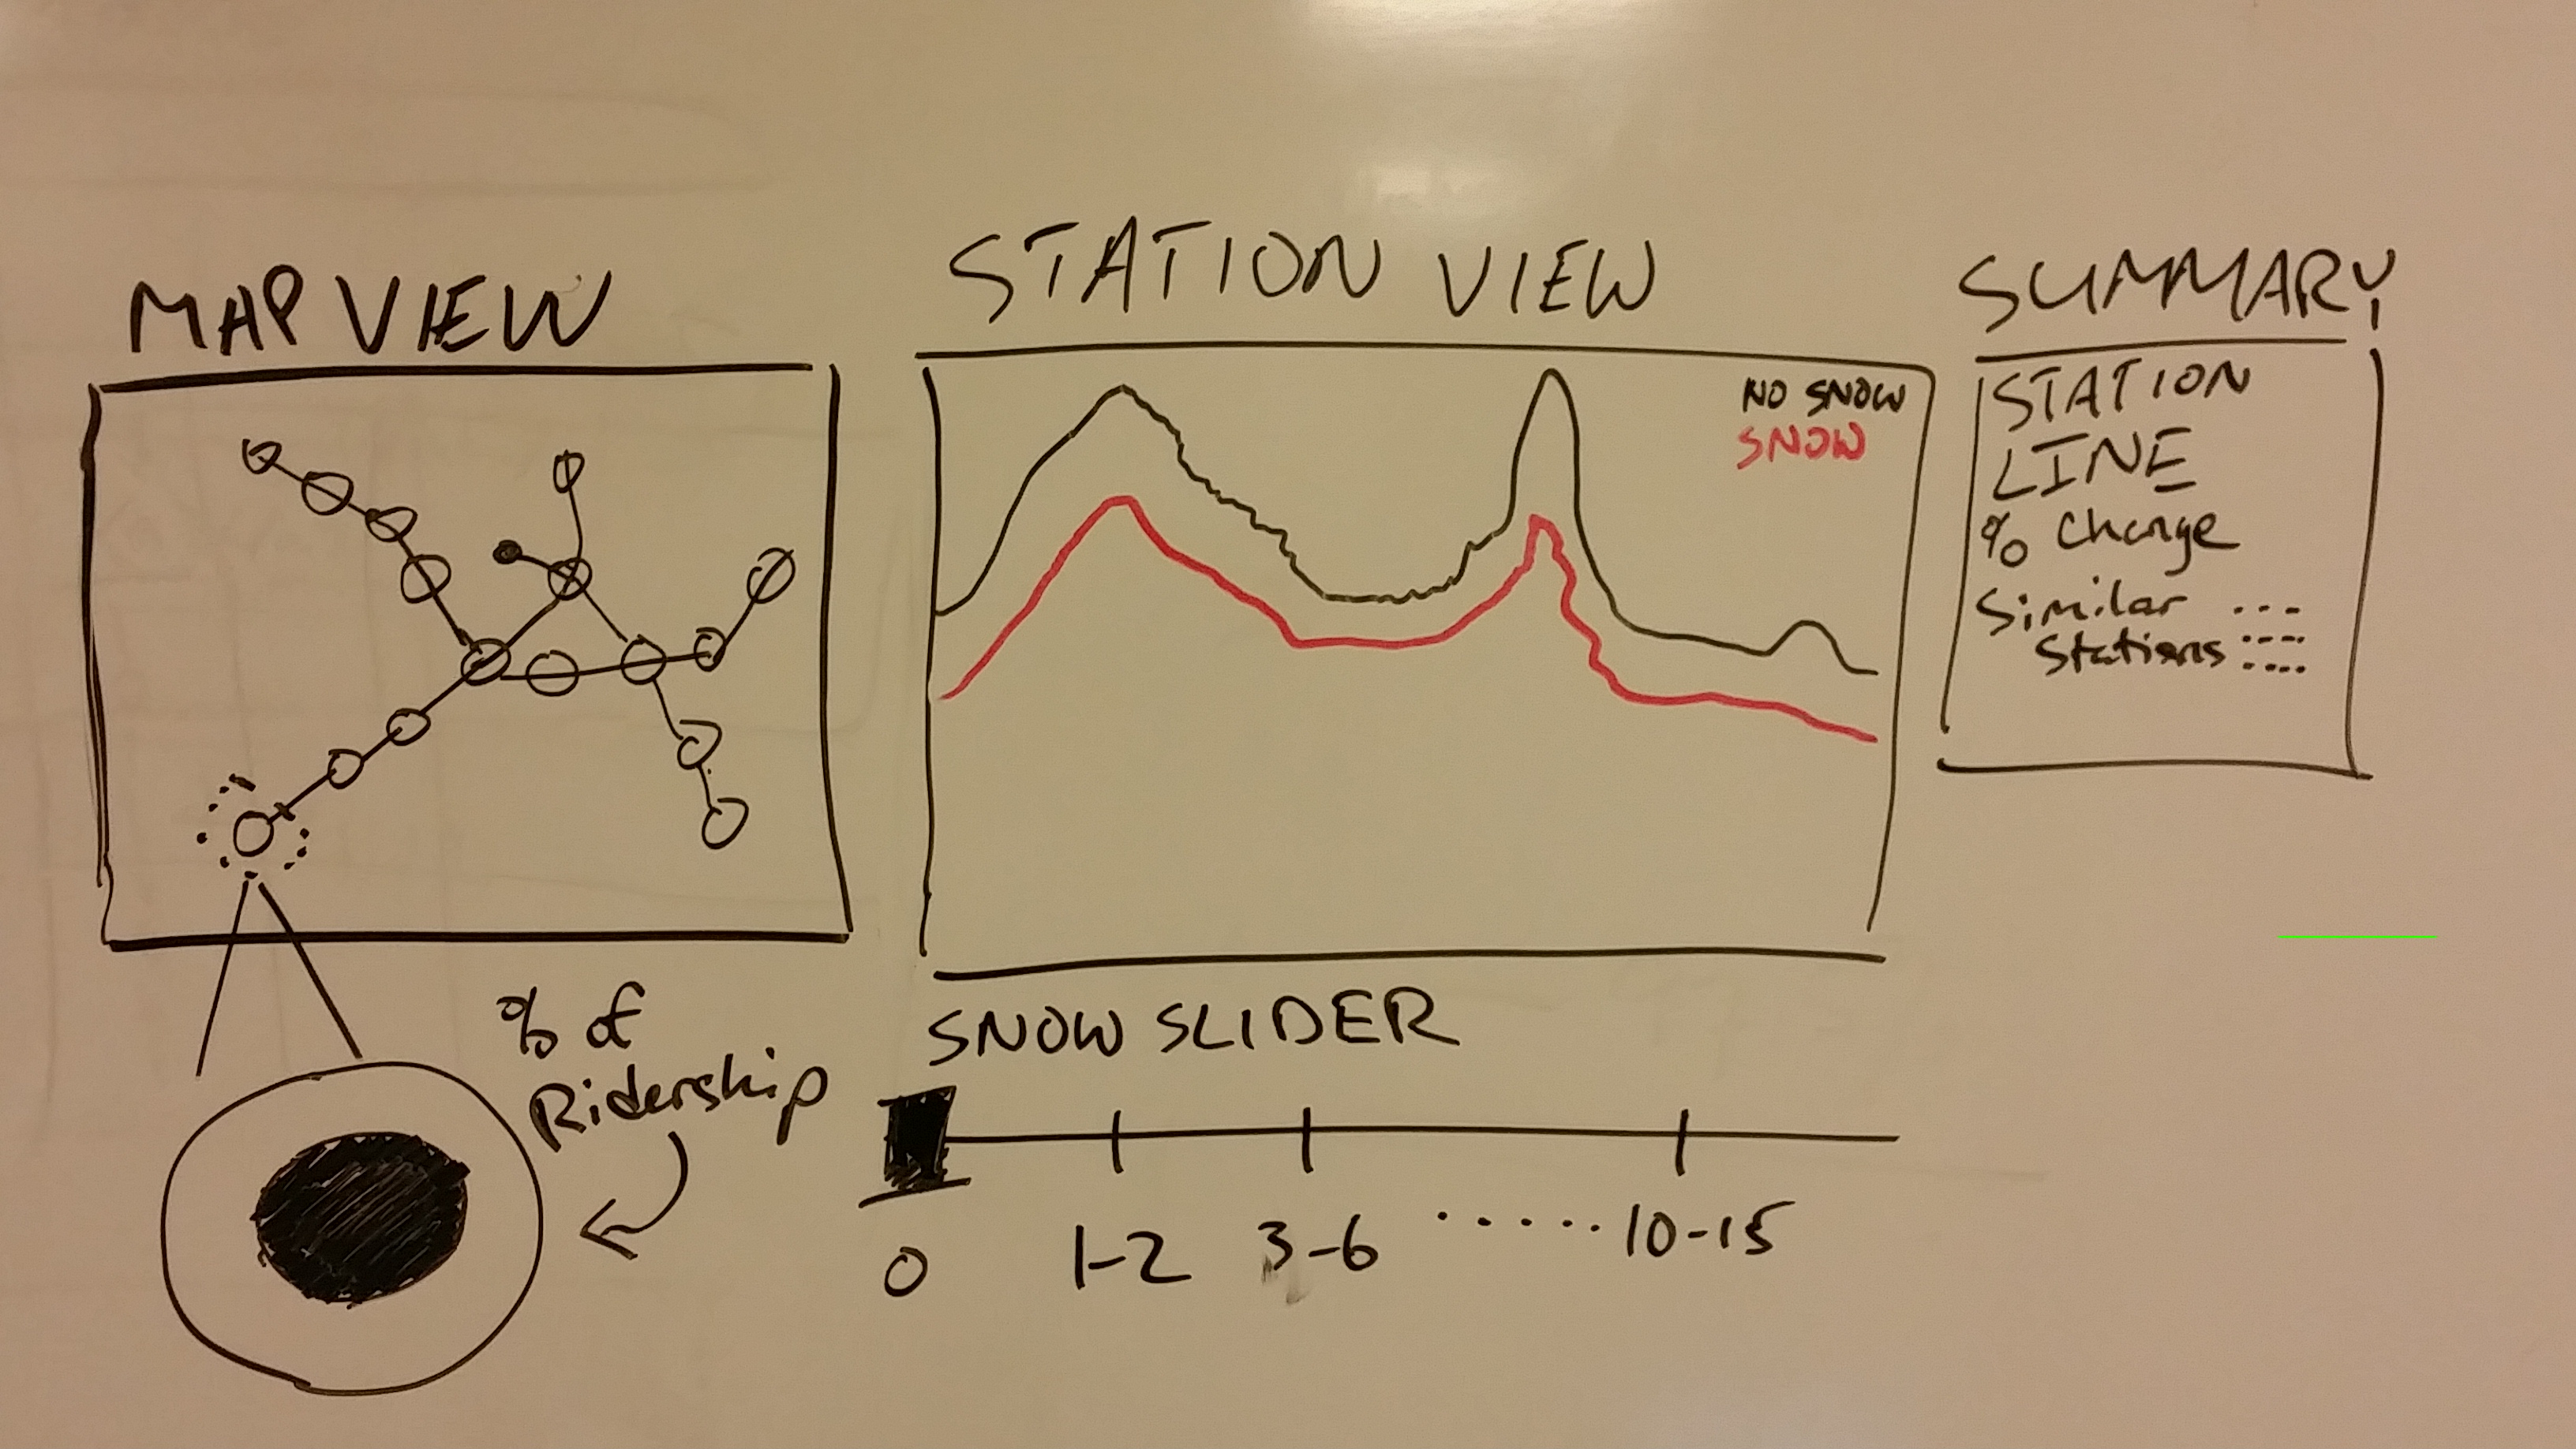 MAP VIEW
% of
Ridership
STATION VIEW
NO SNOW
SNOW
SNOW SLIDER
0 1-2 3-6 ...... 10-15
SUMMARY
STATION
LINE
% Change
Similar ...
Stations ....